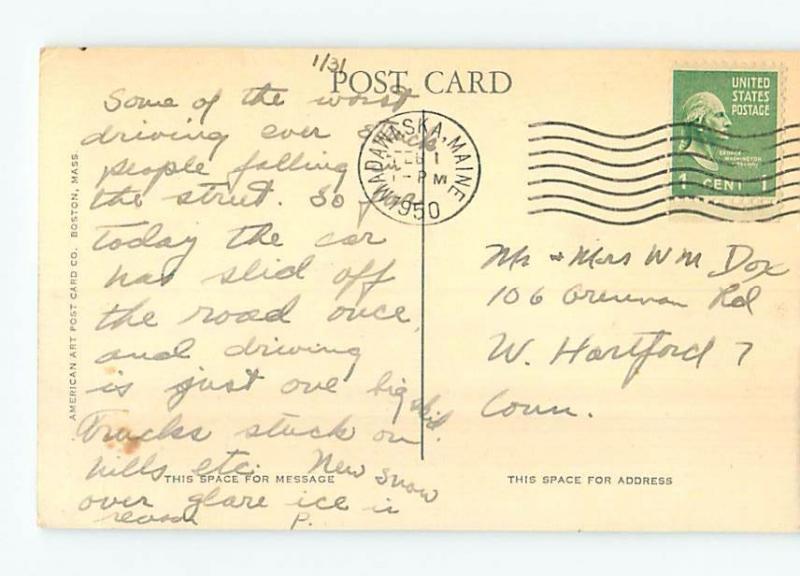 1/31
POST CARD
Some of the worst
driving ever
people falling
the street. So
today the car
has slid off
the road once,
and driving
is just one big skid.
Trucks stuck on
hills etc. New snow
over glare ice is
reason P.
THIS SPACE FOR MESSAGE
AMERICAN ART POST CARD CO. BOSTON, MASS.
MADAWASKA, MAINE
FEB 1
PM
1950
UNITED
STATES
POSTAGE
GEORGE
WASHINGTON
1 CENT 1
Mr + Mrs Wm Dox
106 Rd
W. Hartford 7
Conn.
THIS SPACE FOR ADDRESS